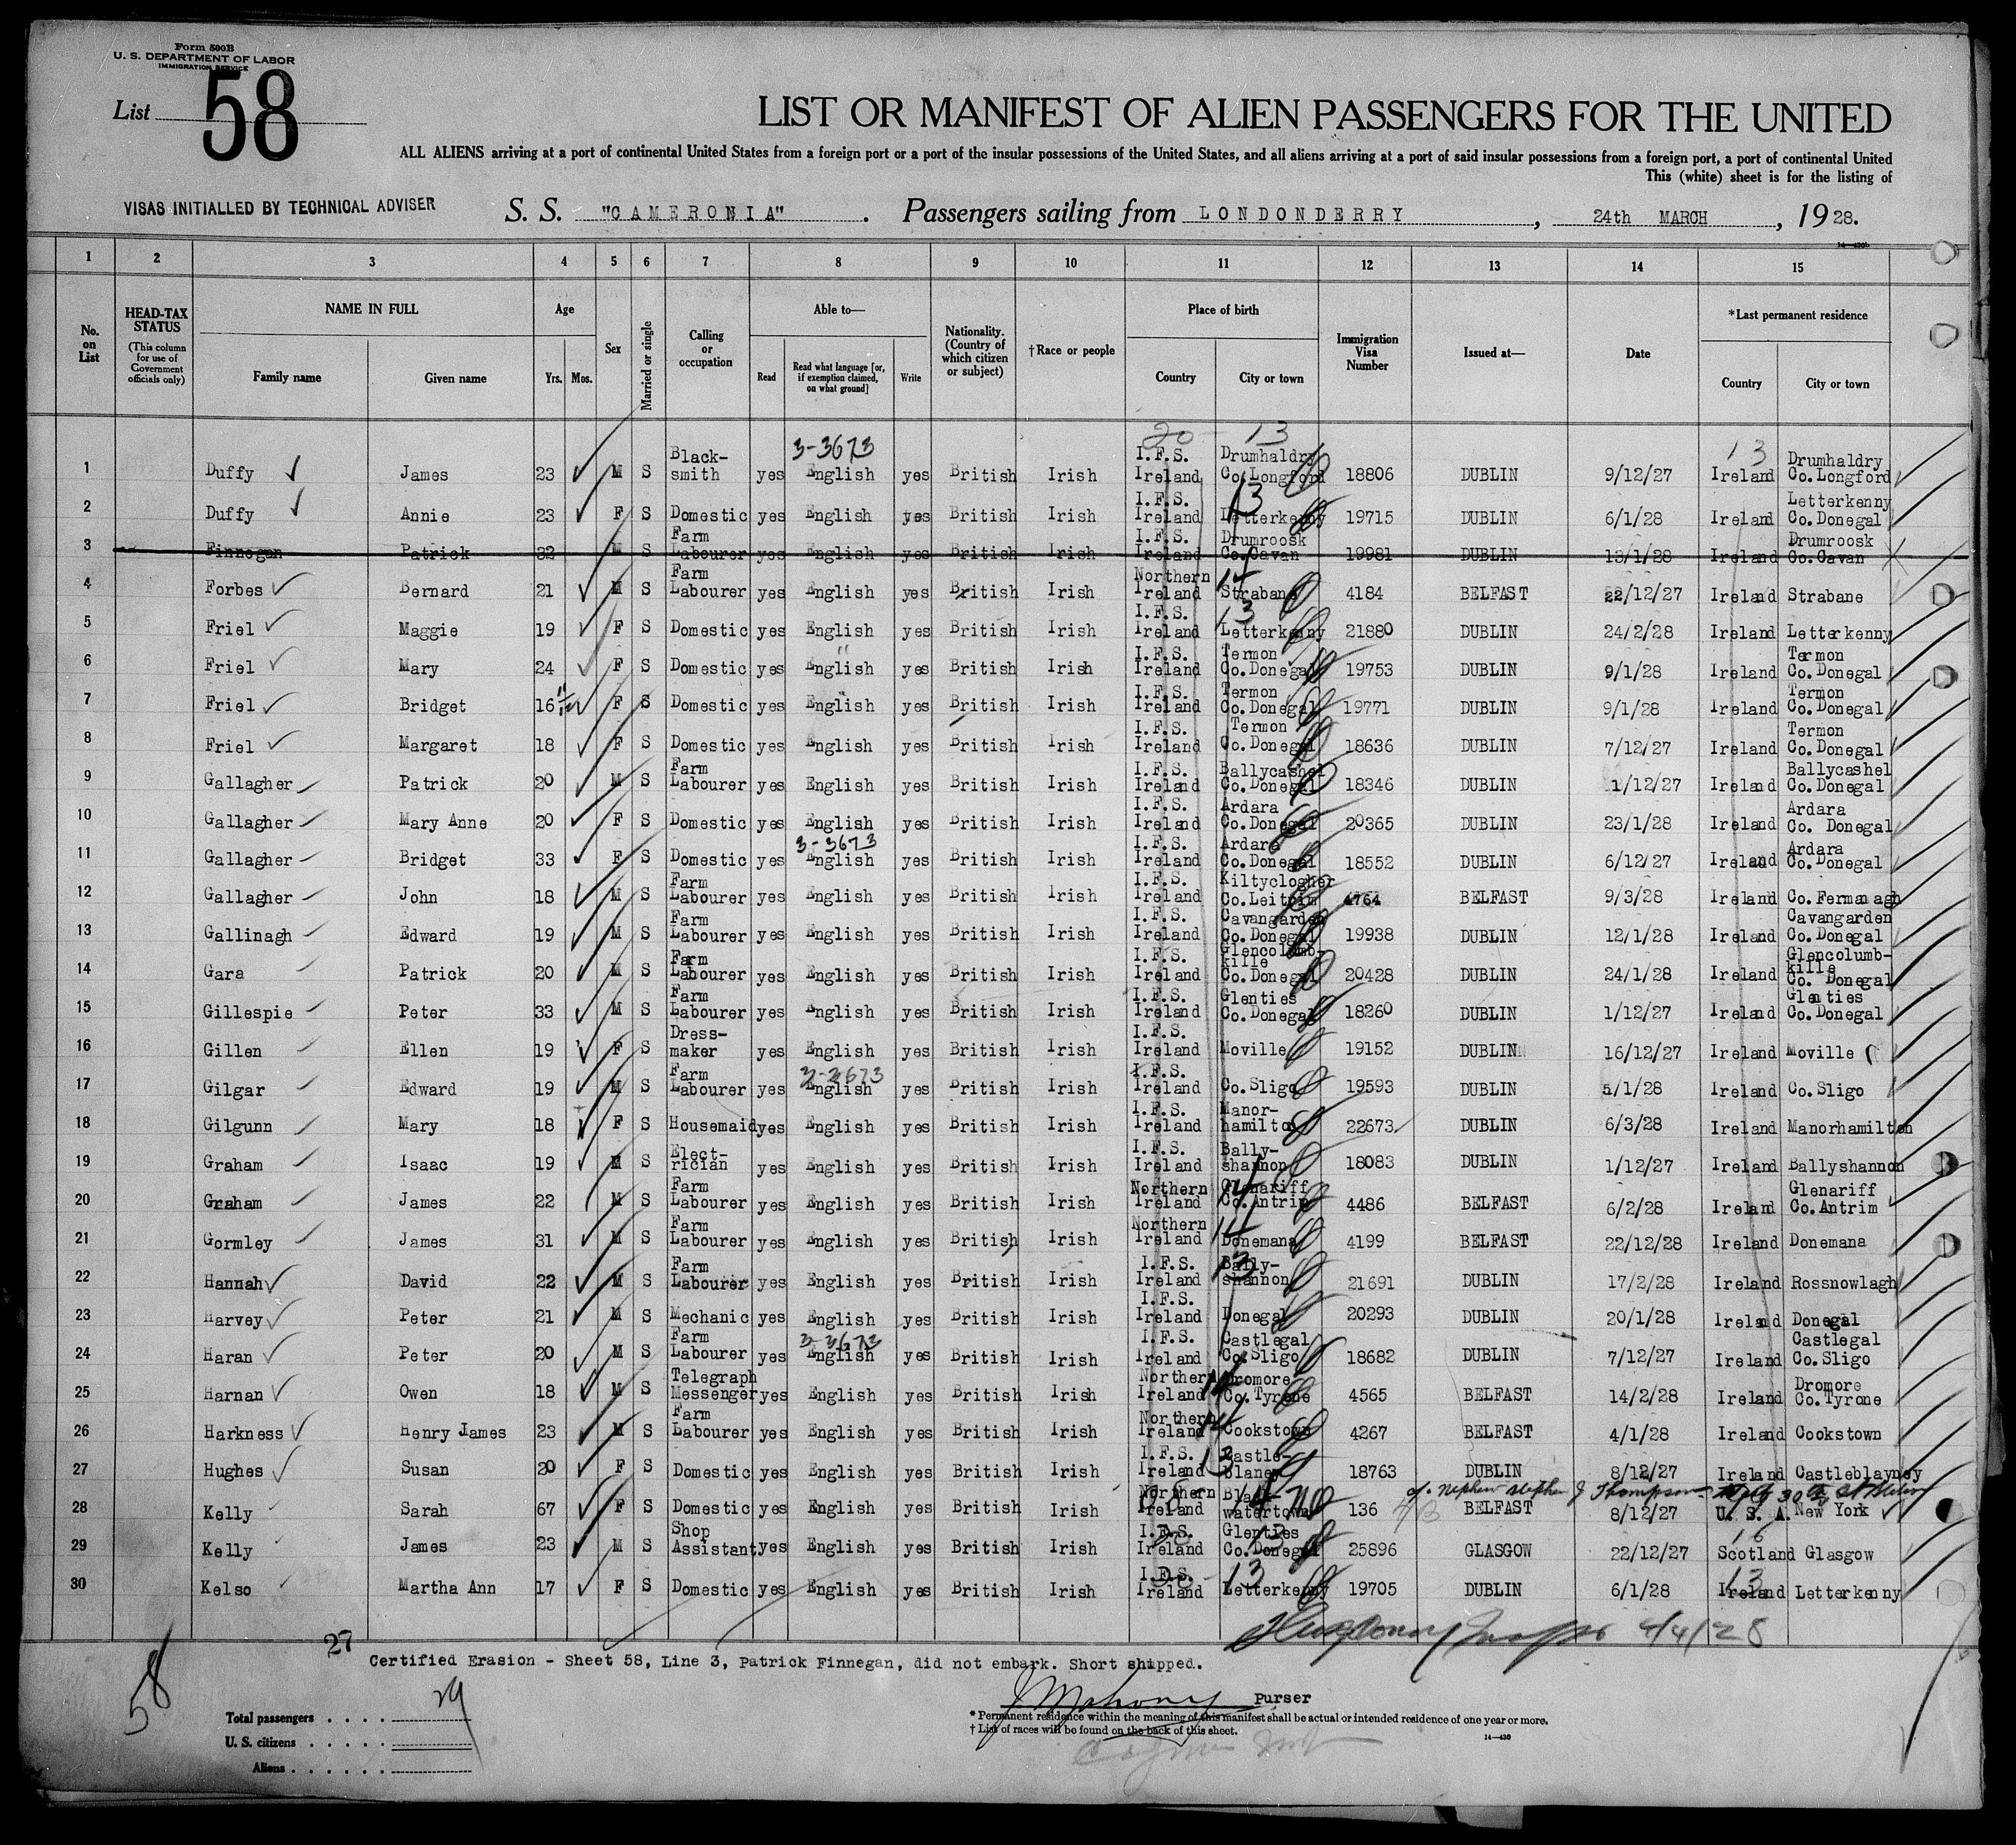 Form 500B
U. S. DEPARTMENT OF LABOR
IMMIGRATION SERVICE
List 58
LIST OR MANIFEST OF ALIEN PASSENGERS FOR THE UNITED
ALL ALIENS arriving at a port of continental United States from a foreign port or a port of the insular possessions of the United States, and all aliens arriving at a port of said insular possessions from a foreign port, a port of continental United
This (white) sheet is for the listing of
VISAS INITIALLED BY TECHNICAL ADVISER
S. S. "CAMERONIA". Passengers sailing from LONDONDERRY, 24th MARCH, 1928.
14—430b
1 2 3 4 5 6 7 8 9 10 11 12 13 14 15
No. on List
HEAD-TAX STATUS (This column for use of Government officials only)
NAME IN FULL Family name Given name
Age Yrs. Mos.
Sex
Married or single
Calling or occupation
Able to— Read Read what language [or, if exemption claimed, on what ground] Write
Nationality. (Country of which citizen or subject)
†Race or people
Place of birth Country City or town
Immigration Visa Number
Issued at—
Date
*Last permanent residence Country City or town
20 13 13
3-3673
1 Duffy James 23 M S Black-smith yes English yes British Irish I.F.S. Ireland Drumhaldry Co.Longford 18806 DUBLIN 9/12/27 Ireland Drumhaldry Co.Longford
2 Duffy Annie 23 F S Domestic yes English yes British Irish I.F.S. Ireland Letterkenny 19715 DUBLIN 6/1/28 Ireland Letterkenny Co.Donegal
3 Finnegan Patrick 32 M S Farm Labourer yes English yes British Irish I.F.S. Ireland Drumroosk Co.Cavan 19981 DUBLIN 13/1/28 Ireland Drumroosk Co.Cavan
4 Forbes Bernard 21 M S Farm Labourer yes English yes British Irish Northern Ireland 14 Strabane 4184 BELFAST 22/12/27 Ireland Strabane
5 Friel Maggie 19 F S Domestic yes English yes British Irish I.F.S. Ireland 13 Letterkenny 21880 DUBLIN 24/2/28 Ireland Letterkenny
6 Friel Mary 24 F S Domestic yes English yes British Irish I.F.S. Ireland Termon Co.Donegal 19753 DUBLIN 9/1/28 Ireland Termon Co.Donegal
7 Friel Bridget 16 11/12 F S Domestic yes English yes British Irish I.F.S. Ireland Termon Co.Donegal 19771 DUBLIN 9/1/28 Ireland Termon Co.Donegal
8 Friel Margaret 18 F S Domestic yes English yes British Irish I.F.S. Ireland Termon Co.Donegal 18636 DUBLIN 7/12/27 Ireland Termon Co.Donegal
9 Gallagher Patrick 20 M S Farm Labourer yes English yes British Irish I.F.S. Ireland Ballycashel Co.Donegal 18346 DUBLIN 1/12/27 Ireland Ballycashel Co.Donegal
10 Gallagher Mary Anne 20 F S Domestic yes English yes British Irish I.F.S. Ireland Ardara Co.Donegal 20365 DUBLIN 23/1/28 Ireland Ardara Co. Donegal
3-3673
11 Gallagher Bridget 33 F S Domestic yes English yes British Irish I.F.S. Ireland Ardara Co.Donegal 18552 DUBLIN 6/12/27 Ireland Ardara Co.Donegal
12 Gallagher John 18 M S Farm Labourer yes English yes British Irish I.F.S. Ireland Kiltyclogher Co.Leitrim 4764 BELFAST 9/3/28 Ireland Co.Fermanagh
13 Gallinagh Edward 19 M S Farm Labourer yes English yes British Irish I.F.S. Ireland Cavangarden Co.Donegal 19938 DUBLIN 12/1/28 Ireland Cavangarden Co.Donegal
14 Gara Patrick 20 M S Farm Labourer yes English yes British Irish I.F.S. Ireland Glencolumbkille Co.Donegal 20428 DUBLIN 24/1/28 Ireland Glencolumb-kille Co. Donegal
15 Gillespie Peter 33 M S Farm Labourer yes English yes British Irish I.F.S. Ireland Glenties Co.Donegal 18260 DUBLIN 1/12/27 Ireland Glenties Co.Donegal
16 Gillen Ellen 19 F S Dress-maker yes English yes British Irish I.F.S. Ireland Moville 19152 DUBLIN 16/12/27 Ireland Moville
3-3673
17 Gilgar Edward 19 M S Farm Labourer yes English yes British Irish I.F.S. Ireland Co.Sligo 19593 DUBLIN 5/1/28 Ireland Co.Sligo
18 Gilgunn Mary 18 F S Housemaid yes English yes British Irish I.F.S. Ireland Manor-hamilton 22673 DUBLIN 6/3/28 Ireland Manorhamilton
19 Graham Isaac 19 M S Elect-rician yes English yes British Irish I.F.S. Ireland Bally-shannon 18083 DUBLIN 1/12/27 Ireland Ballyshannon
20 Graham James 22 M S Farm Labourer yes English yes British Irish Northern Ireland 14 Glenariff Co.Antrim 4486 BELFAST 6/2/28 Ireland Glenariff Co.Antrim
21 Gormley James 31 M S Farm Labourer yes English yes British Irish Northern Ireland 14 Donemana 4199 BELFAST 22/12/28 Ireland Donemana
22 Hannah David 22 M S Farm Labourer yes English yes British Irish I.F.S. Ireland 13 Bally-shannon 21691 DUBLIN 17/2/28 Ireland Rossnowlagh
23 Harvey Peter 21 M S Mechanic yes English yes British Irish I.F.S. Ireland Donegal 20293 DUBLIN 20/1/28 Ireland Donegal
3-3673
24 Haran Peter 20 M S Farm Labourer yes English yes British Irish I.F.S. Ireland Castlegal Co.Sligo 18682 DUBLIN 7/12/27 Ireland Castlegal Co.Sligo
25 Harnan Owen 18 M S Telegraph Messenger yes English yes British Irish Northern Ireland 14 Dromore Co.Tyrone 4565 BELFAST 14/2/28 Ireland Dromore Co.Tyrone
26 Harkness Henry James 23 M S Farm Labourer yes English yes British Irish Northern Ireland 14 Cookstown 4267 BELFAST 4/1/28 Ireland Cookstown
27 Hughes Susan 20 F S Domestic yes English yes British Irish I.F.S. Ireland 13 Castle-blaney 18763 DUBLIN 8/12/27 Ireland Castleblayney
c/o. Nephew Stephen J Thompson
28 Kelly Sarah 67 F S Domestic yes English yes British Irish Northern Ireland 14 Black-watertown 136 BELFAST 8/12/27 U. S. A. New York
29 Kelly James 23 M S Shop Assistant yes English yes British Irish I.F.S. Ireland 13 Glenties Co.Donegal 25896 GLASGOW 22/12/27 16 Scotland Glasgow
30 Kelso Martha Ann 17 F S Domestic yes English yes British Irish I.F.S. Ireland 13 Letterkenny 19705 DUBLIN 6/1/28 13 Ireland Letterkenny
4/4/28
27
Certified Erasion - Sheet 58, Line 3, Patrick Finnegan, did not embark. Short shipped.
58
Purser
Total passengers . . . . 29
U. S. citizens . . . . .
Aliens . . . . . .
* Permanent residence within the meaning of this manifest shall be actual or intended residence of one year or more.
† List of races will be found on the back of this sheet.
14—430